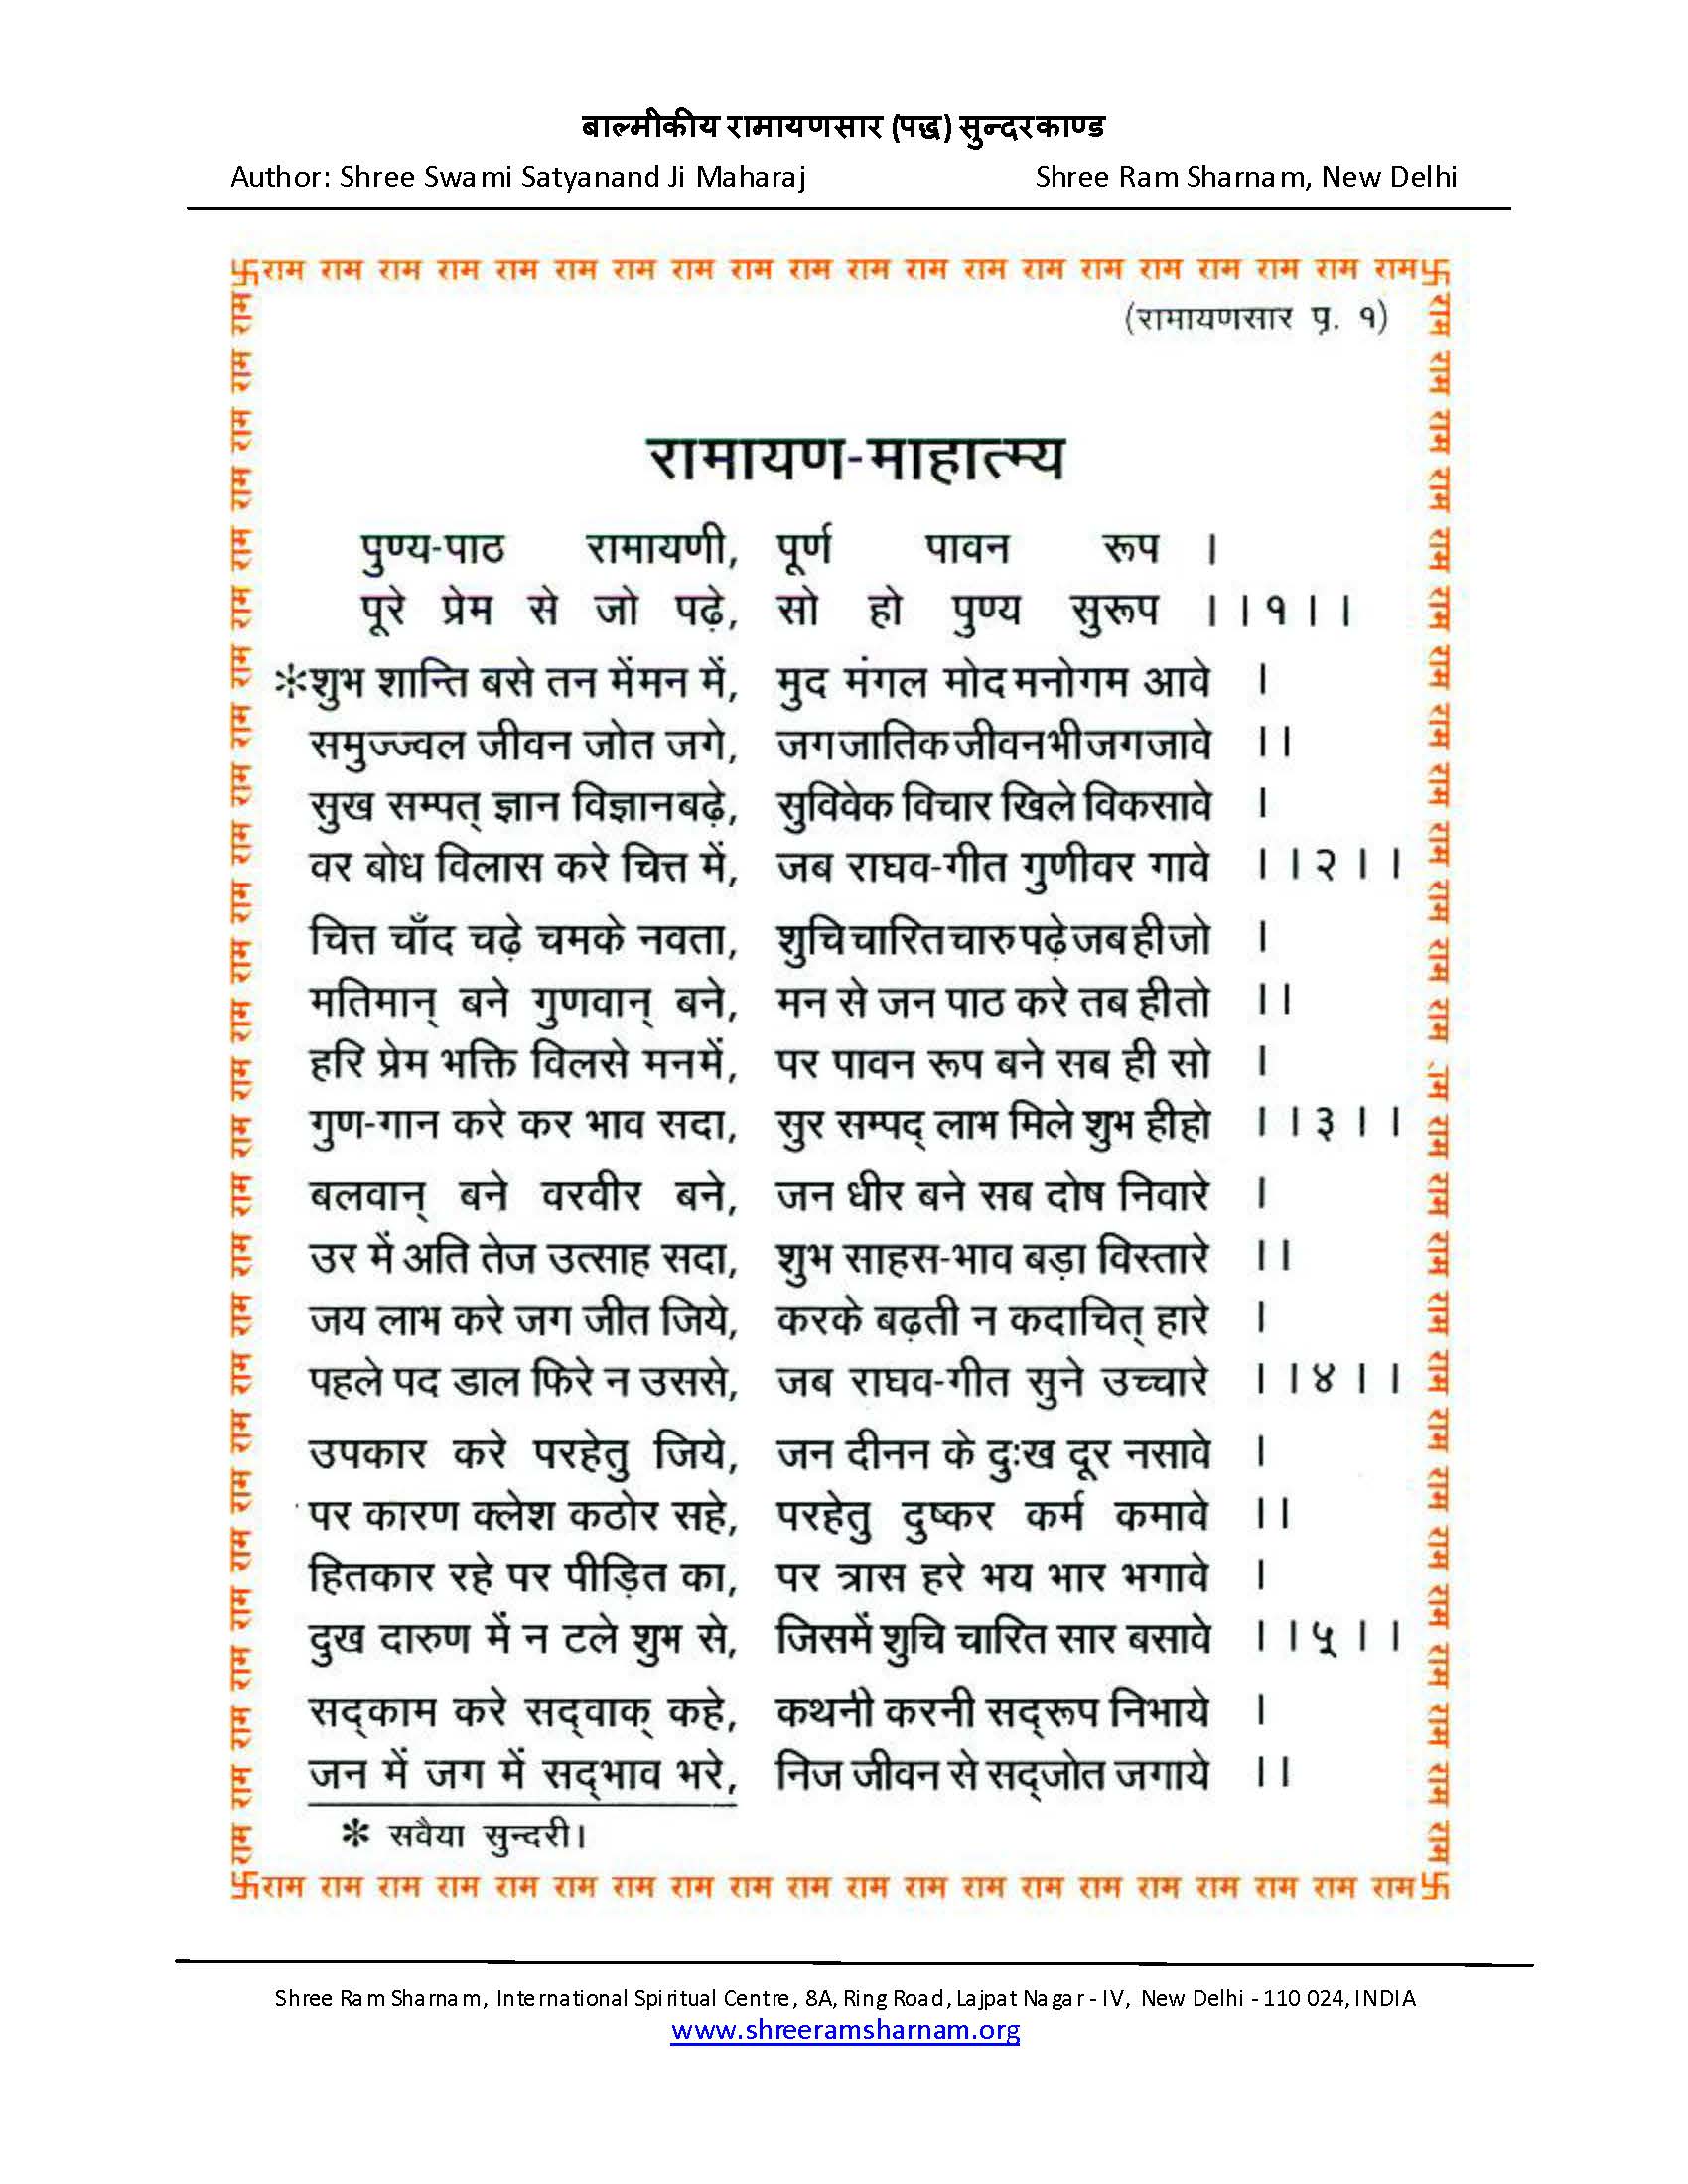 बाल्मीकीय रामायणसार (पद्ध) सुन्दरकाण्ड
Author: Shree Swami Satyanand Ji Maharaj Shree Ram Sharnam, New Delhi
卐राम राम राम राम राम राम राम राम राम राम राम राम राम राम राम राम राम राम राम राम卐
(रामायणसार पृ. १)
रामायण-माहात्म्य
पुण्य-पाठ रामायणी, पूर्ण पावन रूप ।
पूरे प्रेम से जो पढ़े, सो हो पुण्य सुरूप ।।१।।
*शुभ शान्ति बसे तन में मन में, मुद मंगल मोद मनोगम आवे ।
समुज्ज्वल जीवन जोत जगे, जग जातिक जीवन भी जग जावे ।।
सुख सम्पत् ज्ञान विज्ञान बढ़े, सुविवेक विचार खिले विकसावे ।
वर बोध विलास करे चित्त में, जब राघव-गीत गुणीवर गावे ।।२।।
चित्त चाँद चढ़े चमके नवता, शुचि चारित चारु पढ़े जब ही जो ।
मतिमान् बने गुणवान् बने, मन से जन पाठ करे तब ही तो ।।
हरि प्रेम भक्ति विलसे मन में, पर पावन रूप बने सब ही सो ।
गुण-गान करे कर भाव सदा, सुर सम्पद् लाभ मिले शुभ ही हो ।।३।।
बलवान् बने वरवीर बने, जन धीर बने सब दोष निवारे ।
उर में अति तेज उत्साह सदा, शुभ साहस-भाव बड़ा विस्तारे ।।
जय लाभ करे जग जीत जिये, करके बढ़ती न कदाचित् हारे ।
पहले पद डाल फिरे न उससे, जब राघव-गीत सुने उच्चारे ।।४।।
उपकार करे परहेतु जिये, जन दीनन के दुःख दूर नसावे ।
पर कारण क्लेश कठोर सहे, परहेतु दुष्कर कर्म कमावे ।।
हितकार रहे पर पीड़ित का, पर त्रास हरे भय भार भगावे ।
दुख दारुण में न टले शुभ से, जिसमें शुचि चारित सार बसावे ।।५।।
सद्काम करे सद्वाक् कहे, कथनी करनी सद्रूप निभाये ।
जन में जग में सद्भाव भरे, निज जीवन से सद्जोत जगाये ।।
* सवैया सुन्दरी।
卐राम राम राम राम राम राम राम राम राम राम राम राम राम राम राम राम राम राम राम राम卐
Shree Ram Sharnam, International Spiritual Centre, 8A, Ring Road, Lajpat Nagar - IV, New Delhi - 110 024, INDIA
www.shreeramsharnam.org